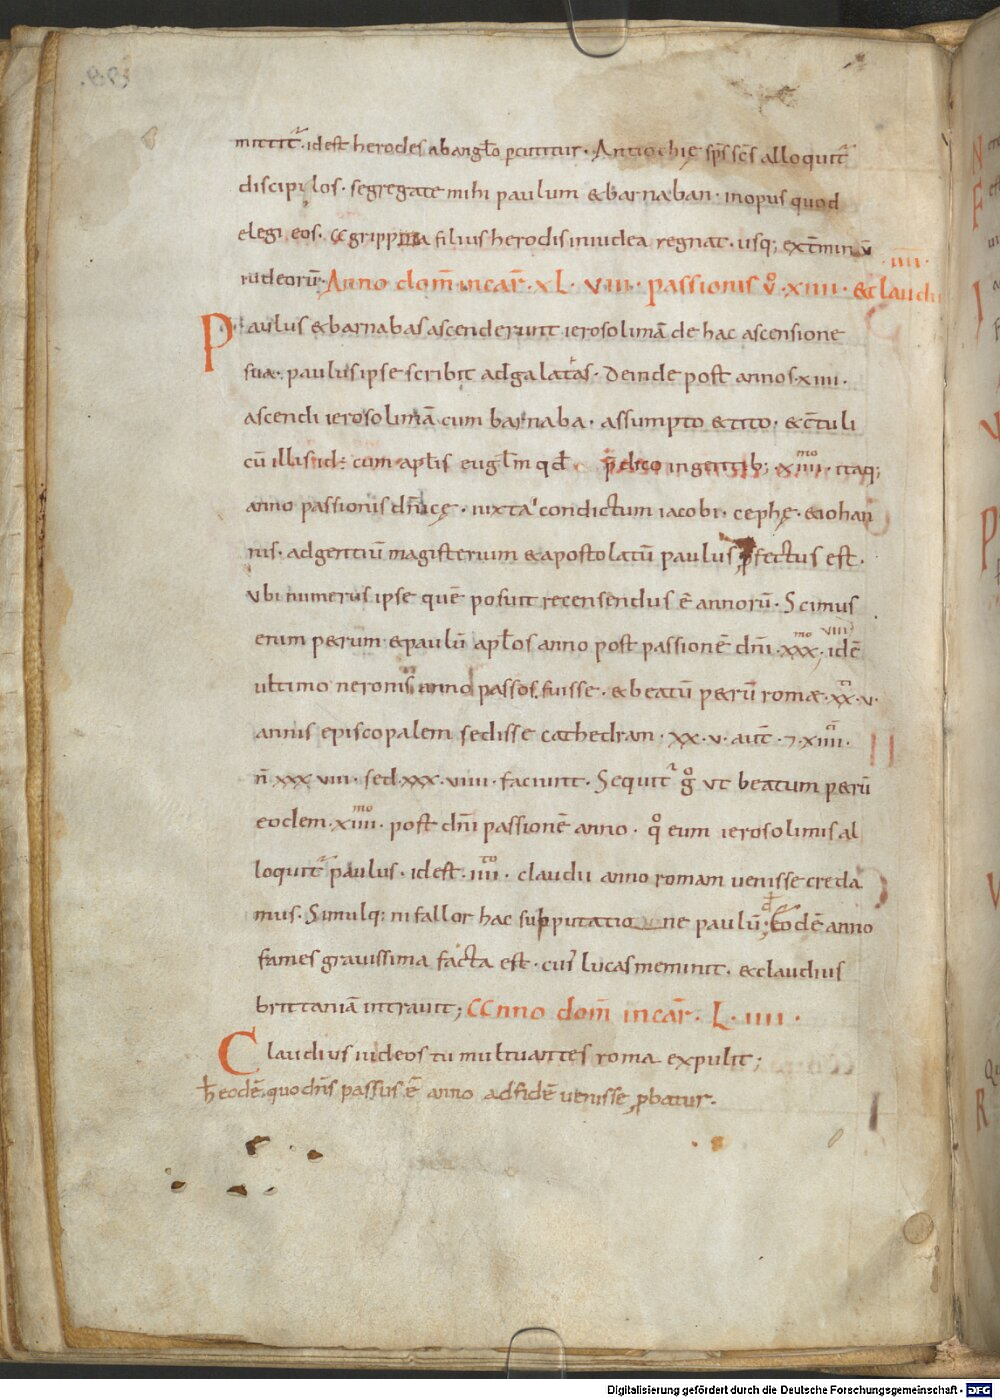 mittit᷑. idest herodes abangl̅o ꝑcutitur. Antiochię sp̅s sc̅s alloquit᷑
discipulos. segregate mihi paulum & barnaban. inopus quod
elegi eos. Agrippa filius herodis iniudea regnat. usq; ext̅minũ
iudeorũ. Anno dom̅ incar̅. XL. VIII. passionis v̊. XIIII. & claudii
IIII.
Paulus & barnabas ascenderunt ierosolimã de hac ascensione
sua. paulus ipse scribit adgalatas. Deinde post annos. xiiii.
ascendi ierosolimã cum barnaba. assumpto & tito. & c̅tuli
cũ illis id: cum apl̅is eugl̅m qd̅ p̅dico ingentib; xiiii mo. itaq;
anno passionis dn̅icę. iuxta condictum iacobi. cephę. & iohan
nis. adgentiũ magisterium & apostolatũ paulus ꝓfectus est.
Vbi numerus ipse quẽ posuit recensendus ẽ annorũ. Scimus
enim petrum & paulũ apl̅os anno post passionẽ dn̅i. xxx. mo VIII idẽ
ultimo neronis anno passos fuisse. & beatũ petrũ romæ. xx. v.
annis episcopalem sedisse cathedram. xx. v. aut̅. ⁊. xiiii.
n̅ xxx viii. sed xxx. viiii. faciunt. Sequit᷑ g̊ ut beatum petrũ
eodem. xiiii mo. post dn̅i passionẽ anno. q̊ eum ierosolimis al
loquit᷑ paulus. idest. iiii to. claudii anno romam uenisse creda
mus. Simulq; ni fallor hac supputatione paulũ; đ Eodẽ anno
fames grauissima facta est. cuiˀ lucas meminit. & claudius
brittaniã intrauit; Anno dom̅ incar̅. L. IIII.
Claudius iudeos tumultuantes roma expulit;
ħ eodẽ quo dn̅s passus ẽ anno ad fidẽ uenisse ꝓbatur.